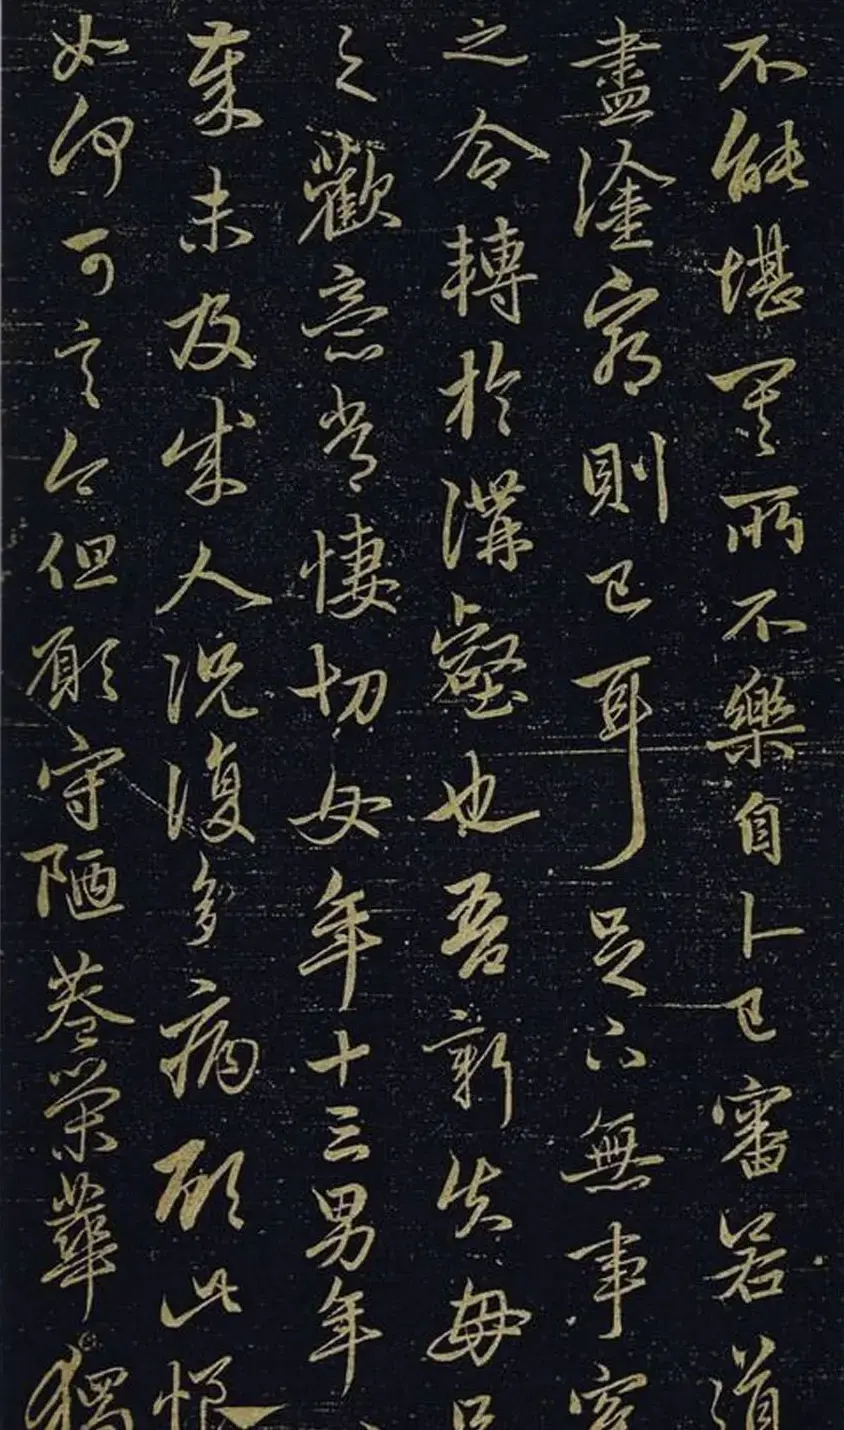 不能堪其所不樂自卜已審若道
盡塗窮則已耳足下無事冤
之令轉於溝壑也吾新失母
之歡意常悽切女年十三男年
歲未及成人況復多病顧此恨
如何可言今但願守陋巷榮華獨